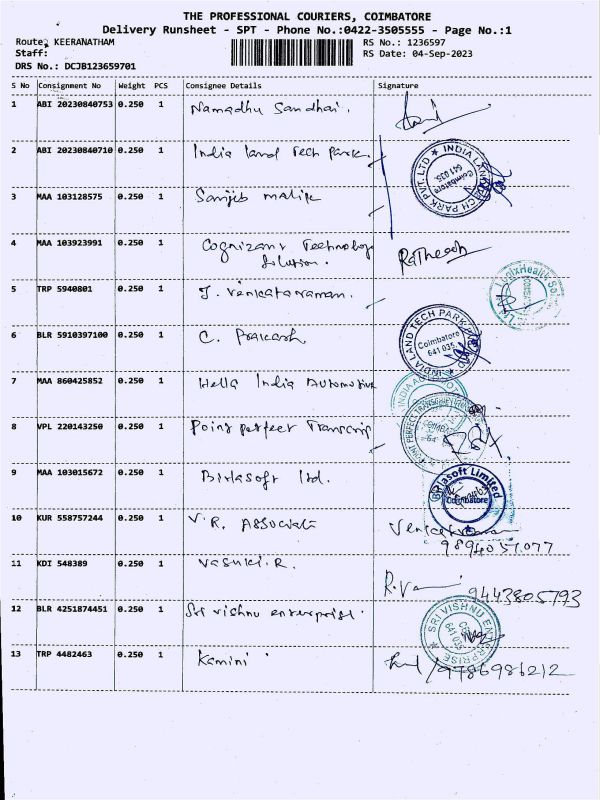 THE PROFESSIONAL COURIERS, COIMBATORE
Delivery Runsheet - SPT - Phone No.:0422-3505555 - Page No.:1
Route: KEERANATHAM RS No.: 1236597
Staff: RS Date: 04-Sep-2023
DRS No.: DCJB123659701
S No Consignment No Weight PCS Consignee Details Signature
1 ABI 20230840753 0.250 1 Namadhu Sandhai.
2 ABI 20230840710 0.250 1 India land Tech Park.
INDIA LAND TECH PARK PVT. LTD
Coimbatore
641 035.
3 MAA 103128575 0.250 1 Sanjib malik
4 MAA 103923991 0.250 1 Cognizant Technology
Solution.
Ratheesh
5 TRP 5940801 0.250 1 J. Venkataraman.
6 BLR 5910397100 0.250 1 C. Prakash
INDIA LAND TECH PARK
Coimbatore
641 035.
7 MAA 860425852 0.250 1 Hella India Automotive
8 VPL 220143250 0.250 1 Point perfect Transcrip
POINT PERFECT
9 MAA 103015672 0.250 1 Birlasoft ltd.
Birlasoft Limited
Coimbatore
10 KUR 558757244 0.250 1 V.R. Associate
9894051077
11 KDI 548389 0.250 1 Vasuki.R.
9443805793
12 BLR 4251874451 0.250 1 Sri vishnu enterprise.
SRI VISHNU ENTERPRISE
641 035
13 TRP 4482463 0.250 1 Kamini
/9786986212